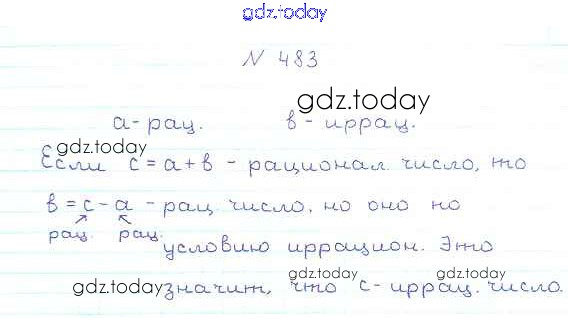 gdz.today
N 483
gdz.today
а - рац. в - иррац.
gdz.today
Если с = а + в - рационал. число, то
в = с - а - рац. число, но оно но
рац. рац.
условию иррацион. Это
gdz.today gdz.today
gdz.today значит, что с - иррац. число.